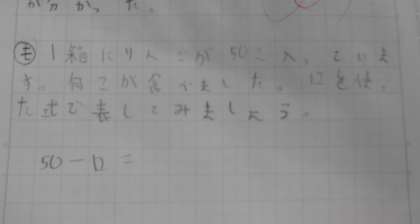 が分かった。
㋲ 1箱にりんごが50こ入っていま
す。何こか食べました。□を使っ
た式で表してみましょう。
50－□＝